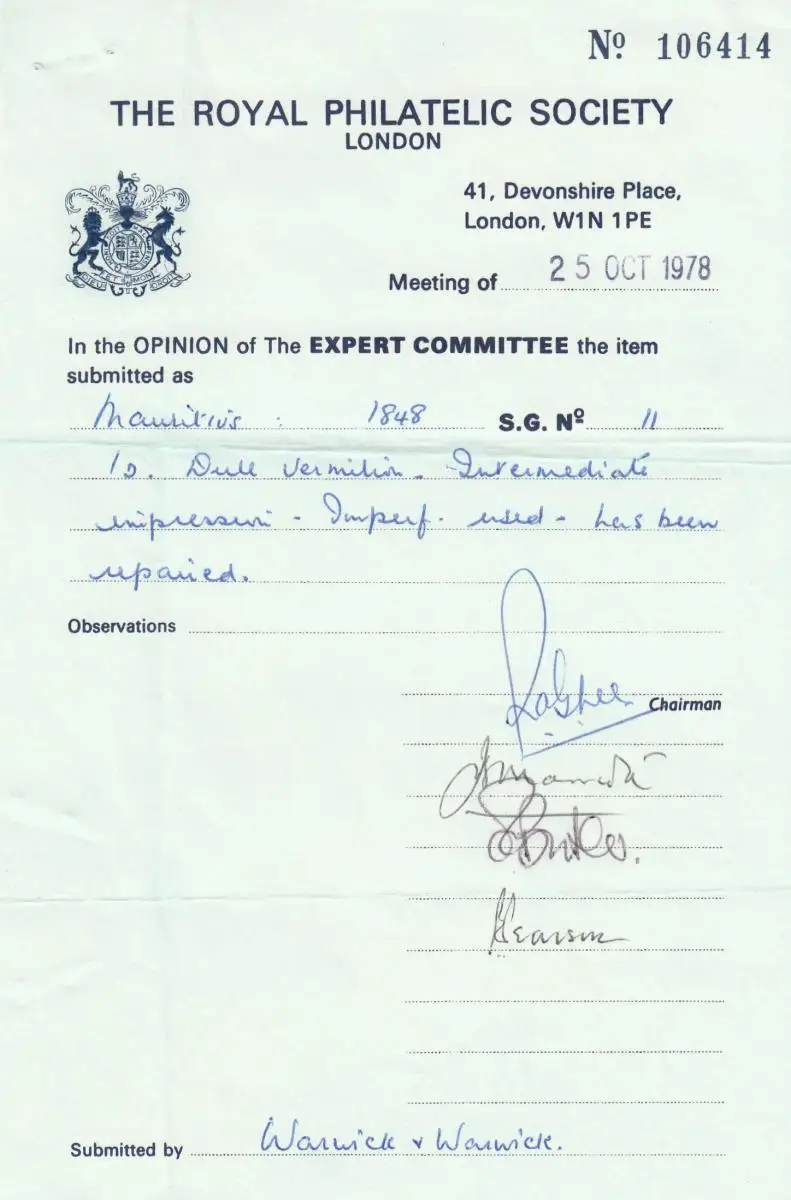 Nº 106414
THE ROYAL PHILATELIC SOCIETY
LONDON
41, Devonshire Place,
London, W1N 1PE
Meeting of 25 OCT 1978
In the OPINION of The EXPERT COMMITTEE the item
submitted as
Mauritius : 1848 S.G. Nº 11
1d. Dull vermilion - Intermediate
impression - Imperf. used - has been
repaired.
Observations
Chairman
Pearson
Submitted by Warwick & Warwick.